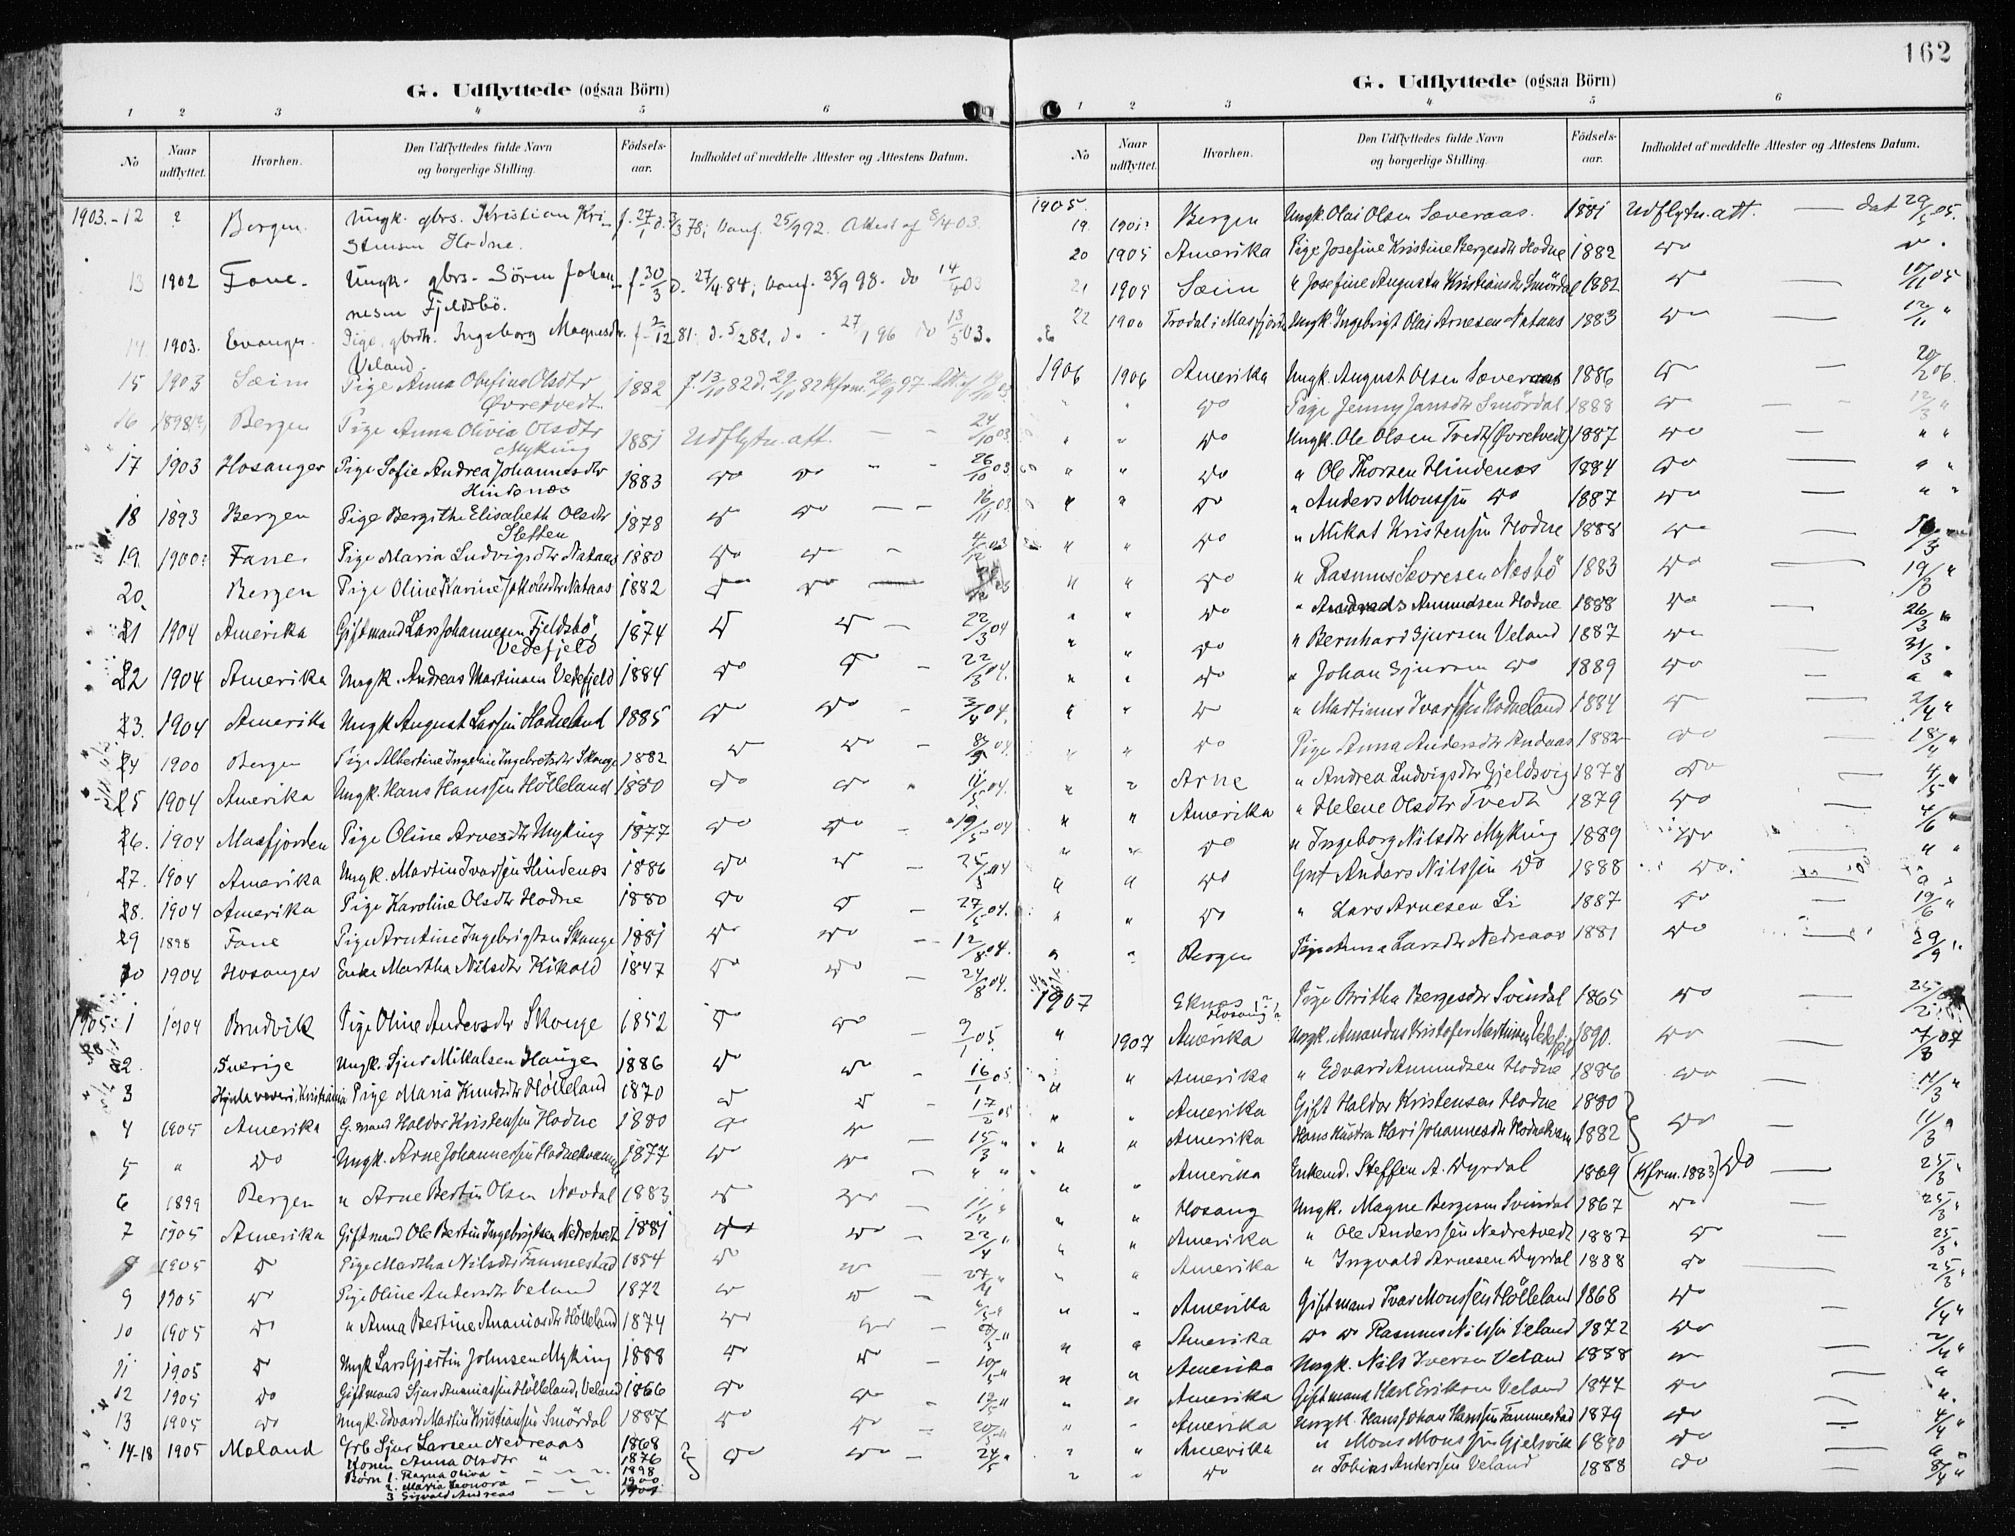 162
G. Udflyttede (ogsaa Börn)
1 2 3 4 5 6
No Naar udflyttet. Hvorhen. Den Udflyttedes fulde Navn og borgerlige Stilling. Födsels-aar. Indholdet af meddelte Attester og Attestens Datum.
1903.-12 ? Bergen. Ungk. gbrs. Kristian Kri- f. 27/1 d. 3/3 78; konf. 25/9 92. Attest af 8/4 03.
stensen Hodne.
13 1902 Fane. Ungk. gbrs. Sören Johan- f. 30/3 d. 27/4 84; konf. 25/9 98. do 14/4 03
nesen Fjeldsbö.
14 1903. Evanger. Pige, gbrdtr. Ingeborg Magnesdtr. f. 2/12 81. d. 5/2 82, do 13/5 03.
Veland.
15 1903 Sæim Pige Anna Olufine Olsdtr 1882 f. 13/10 82 d. 29/10 82 Kfrm. 26/9 97
Øvretvedt.
16 1898(?) Bergen Pige Anna Olivia Olsdtr 1881 Udflytn. att. — — 24/10 03
Myking
17 1903 Hosanger Pige Sofie Andrea Johannesdtr 1883 do do " — 26/10 03
Hindenæs
18 1893 Bergen Pige Bergithe Elisabeth Olsdtr 1878 do do — — 16/11 03
Sletten
19. 1900? Fane Pige Maria Ludvigsdtr Nataas 1880 do do
20 Bergen Pige Oline Karine Jakobsdtr Nataas 1882 do do
21 1904 Amerika Gift mand Lars Johannesen Fjeldsbö, 1874 do do — 22/3 04
Vedefjeld
22 1904 Amerika Ungk. Andreas Martinsen Vedefjeld 1884 do do — 22/3 04.
23. 1904 Amerika Ungk August Larssen Hodneland 1885 do do — 3/4 04.
24 1900 Bergen Pige Albertine Ingeline Ingebrigtsdtr Skouge 1882 do do
25 1904 Amerika Ungk. Hans Hanssen Hölleland 1880 do do " 11/5 04.
26. 1904 Masfjorden Pige Oline Arnesdtr Myking 1877 do do — 19/5 04
27. 1904 Amerika Ungk. Martin Ivarssen Hindenæs 1886 do do — 25/5 04
28. 1904 Amerika Pige Karoline Olsdtr Hodne 1880 do do — 27/5 04.
29 1898 Fane Pige Arntine Ingebrigtsen Skouge 1881 do do — 12/8 04.
30 1904 Hosanger Enke Martha Nilsdtr Kikold 1847 do do — 24/8 04.
1905: 1 1904 Brudvik Pige Oline Andersdtr Skouge 1852 do do — 9/1 05.
2. Sverige Ungk. Sjur Mikalsen Haugen 1886 do do — 16/1 05
3 Hjula veveri, Kristiania Pige Maria Knudsdtr Hölleland 1870 do do — 17/2 05
4 1905 Amerika G. mand Haldor Kristenssen Hodne 1880 do do — 15/3 "
5 " do Ungk. Arne Johannessen Hodnekvammen 1877 do do — " "
6 1899 Bergen " Arne Bertin Olsen Nævdal 1883 do do — 11/4 "
7 1905 Amerika Gift mand Ole Bertin Ingebrigtsen Nedretvedt 1881 do do — 22/4 "
8 1905 do Pige Martha Nilsdtr Fammestad 1854 do do —
9 1905 do Pige Oline Andersdtr Veland 1872 do do —
10 1905 do " Anna Bertine Ananiasdtr Hölleland 1874 do do —
11 1905 do Ungk Lars Gjertin Johnsen Myking 1888 do do — 10/5 "
12 1905 do Gift mand Sjur Ananiassen Hölleland, Veland 1866 do do —
13 1905 do Ungk. Edvard Martin Kristiansen Smördal 1887 do do — 20/5 "
14-18 1905 Mæland Grb Sjur Larsen Nedreaas 1868 do do — 24/5 "
Konen Anna Olsdtr " 1876
Börn 1. Ragna Oliva " 1898
2. Maria Leonora 1900
3 Sigvald Andreas
G. Udflyttede (ogsaa Börn)
1 2 3 4 5 6
No Naar udflyttet. Hvorhen. Den Udflyttedes fulde Navn og borgerlige Stilling. Födsels-aar. Indholdet af meddelte Attester og Attestens Datum.
1905.
19. 190 Bergen Ungk. Olai Olsen Sæveraas. 1881 Udflytn. att. — dat 29/5 05.
20 1905 Amerika Pige Josefine Kristine Bergesdtr Hodne 1882 do
21 1905 Sæim " Josefine Augusta Kristiansdtr Smördal 1882 do — 10/11 05
22 1900 Trædal i Masfjorden Ungk. Ingebrigt Olai Arnesen Nataas 1883 do — 12/11 "
1906 1906 Amerika Ungk. August Olsen Sæveraas 1886 do — 20/2 06.
" " do Pige Jenny Jansdtr Smördal 1888 do — — 12/3 "
" " do Ungk. Ole Olsen Tvedt (Øvretvedt) 1887 do — " "
" " do " Ole Thorsen Hindenæs 1884 do — " "
" " do " Anders Monssen do 1887 do — " "
" " do " Mikal Kristenssen Hodne 1888 do —
" " do " Rasmus Sævresen Næsbö 1883 do — 19/3 "
" " do " Andreas Amundsen Hodne 1888 do — 26/3 "
" " do " Bernhard Sjursen Veland 1887 do — 31/3 "
" " do " Johan Sjursen do 1889 do — " "
" " do " Martinus Ivarssen Hodneland 1884 do — 2/4 "
" " do Pige Anna Andersdtr Andaas 1882 do — 18/4 "
" " Arne " Andrea Ludvigsdtr Gjeldsvig 1878 do — 4/5 "
" " Amerika " Helene Olsdtr Tvedt 1879 do — 4/6 "
" " do " Ingeborg Nilsdtr Myking 1889 do — " "
" " do Gut Anders Nilssen do 1888 do. — " "
" " do " Lars Arnesen Li 1887 do — 19/6 "
" " Bergen Pige Anna Larsdtr Nedreaas 1881 do — 29/9 "
1907 Eknes Hosang? Pige Britha Bergesdtr Svindal 1865 do —
" 1907 Amerika Ungk. Amandus Kristofer Martinsen Vedefjeld 1890. do — 7/3 07
" " Amerika " Edvard Amundsen Hodne 1886 do —
" " Amerika Gift Haldor Kristensen Hodne 1880 } do — 11/3 "
" " Amerika Hans Hustru Kari Johannesdtr Hodnekvam 1882
" " Amerika Enkemd. Steffen A. Dyrdal 1869 (Kfrm. 1883) do — 25/3 "
" " Hosang Ungk. Magne Bergesen Svindal 1867 do — 25/3 "
" " Amerika " Ole Anderssen Nedretvedt 1887 do — 25/3 "
" " Amerika " Ingvald Arnesen Dyrdal 1888 do — 25/3 "
" " Amerika Gift mand Ivar Monssen Hölleland 1868 do —
" " Amerika do do Rasmus Nilssen Veland 1872 do —
" " Amerika Ungk. Nils Iversen Veland 1888 do —
" " Amerika Gift mand Karl Eriksen Veland 1877 do —
" " Amerika Ungk. Hans Johan Hanssen Fammestad 1879 do —
" " Amerika " Mons Monssen Gjelsvik 1890 do —
" " do " Tobias Anderssen Veland 1888 do — 8/4 "